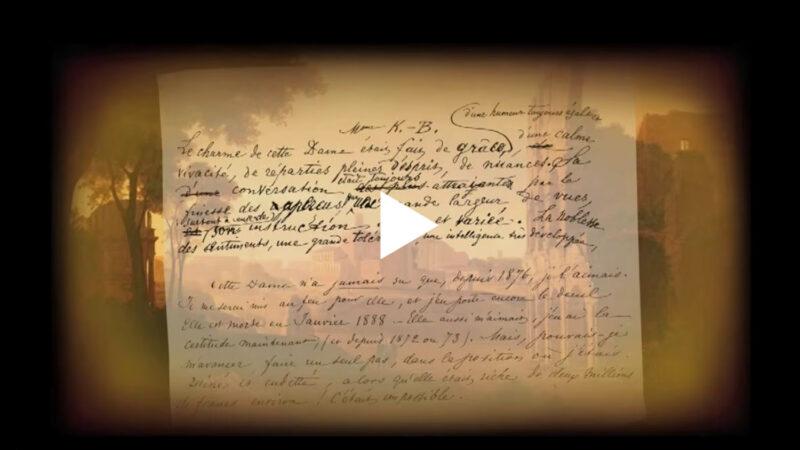 Mme K.-B.
d'une humeur toujours égale,
Le charme de cette Dame était fait de grâce, d'une calme
vivacité, de réparties pleines d'esprit, de nuances. Sa
conversation était toujours attrayante par la
finesse des aperçus, grande largeur de vues
son instruction, et variée. La noblesse
des sentiments, une grande une intelligence très développée,
Cette Dame n'a jamais su que, depuis 1876, je l'aimais.
Je me serai mis au feu pour elle, et j'en porte encore le deuil
Elle est morte en Janvier 1888 - Elle aussi m'aimait, j'en ai la
certitude maintenant, (et depuis 1872 ou 73). Mais, pouvais-je
m'avancer, faire un seul pas, dans la position où j'étais.
Ruiné et endetté, alors qu'elle était riche de deux millions
de francs environ! C'était impossible.